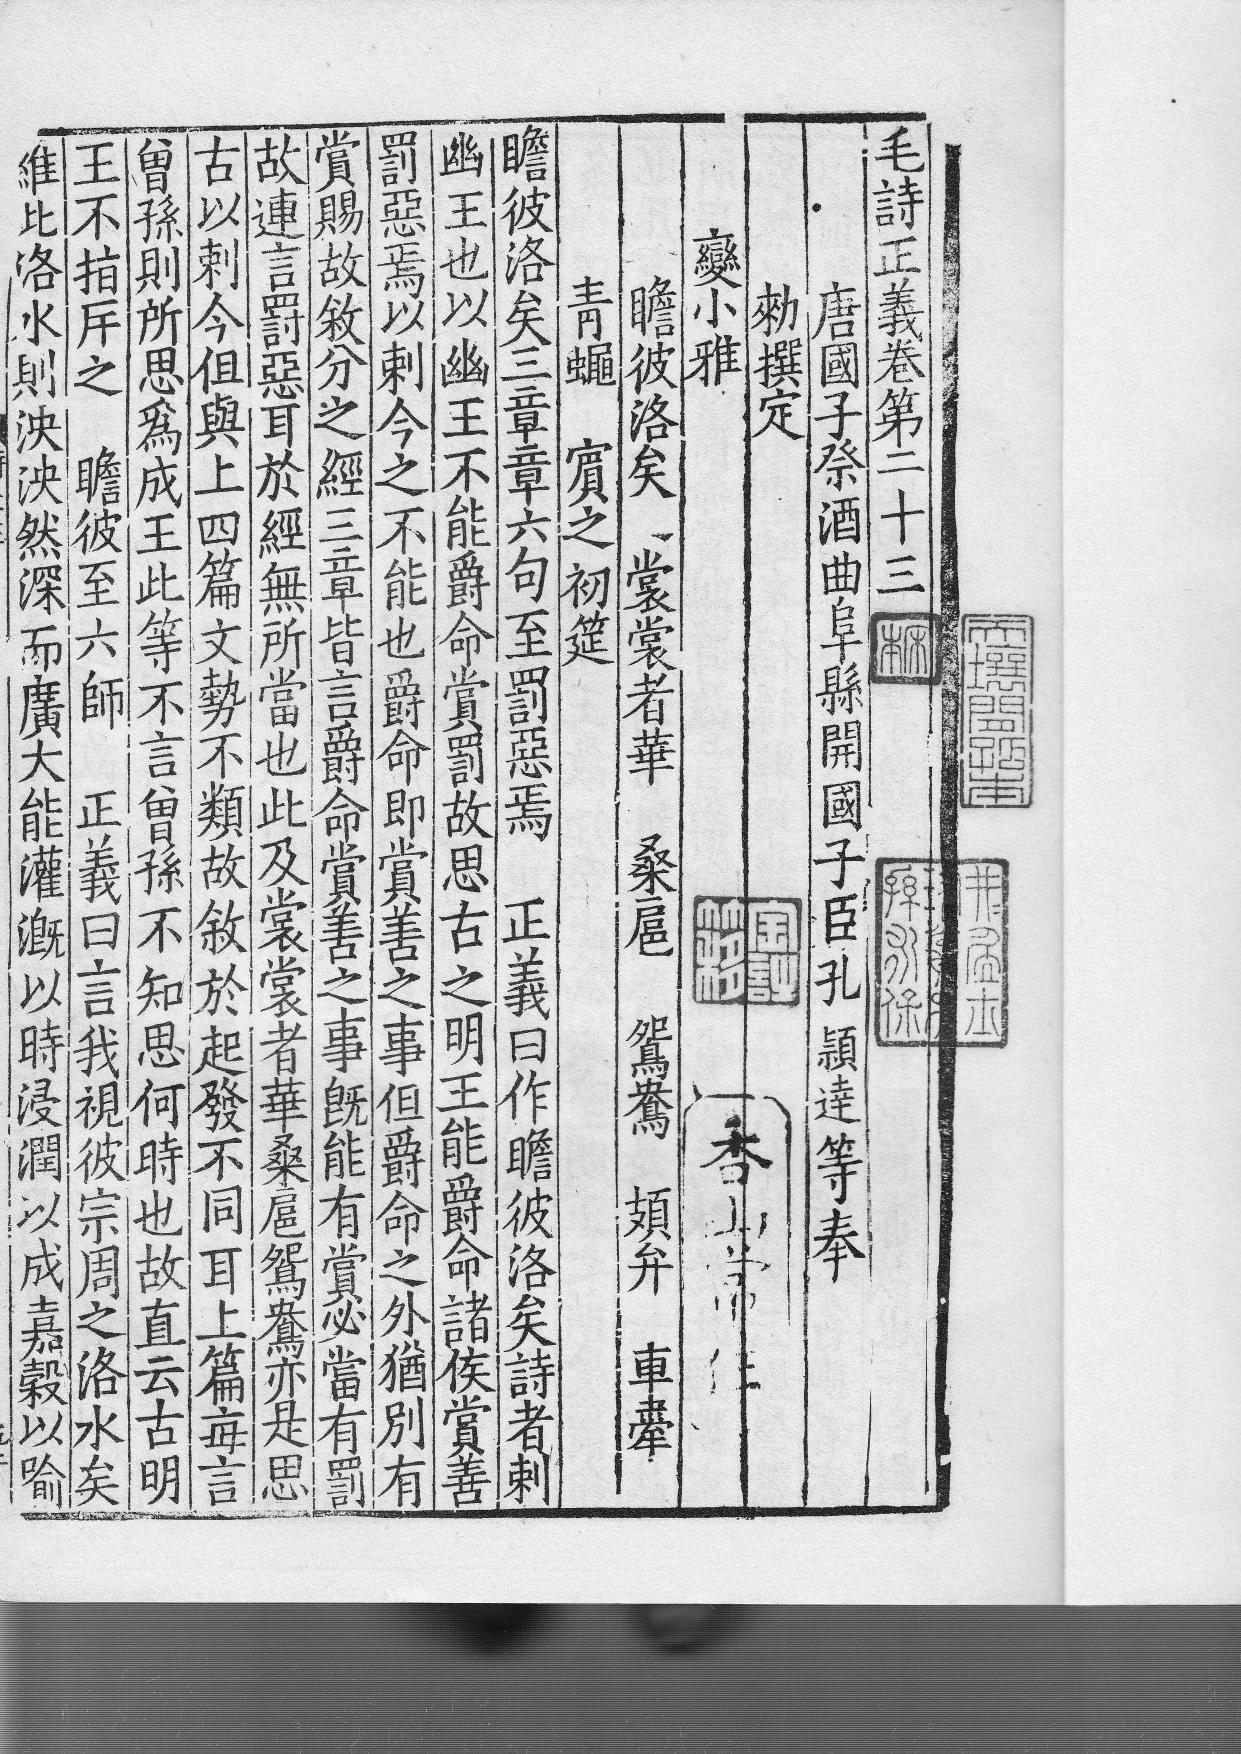 毛詩正義卷第二十三
唐國子祭酒曲阜縣開國子臣孔穎達等奉
勑撰定
變小雅
瞻彼洛矣 裳裳者華 桑扈 鴛鴦 頍弁 車舝
青蠅 賓之初筵
瞻彼洛矣三章章六句至罰惡焉 正義曰作瞻彼洛矣詩者刺
幽王也以幽王不能爵命賞罰故思古之明王能爵命諸侯賞善
罰惡焉以刺今之不能也爵命即賞善之事但爵命之外猶別有
賞賜故敘分之經三章皆言爵命賞善之事旣能有賞必當有罰
故連言罰惡耳於經無所當也此及裳裳者華桑扈鴛鴦亦是思
古以刺今但與上四篇文勢不類故敘於起發不同耳上篇每言
曾孫則所思爲成王此等不言曾孫不知思何時也故直云古明
王不指斥之 瞻彼至六師 正義曰言我視彼宗周之洛水矣
維此洛水則泱泱然深而廣大能灌漑以時浸潤以成嘉穀以喻
香山常住